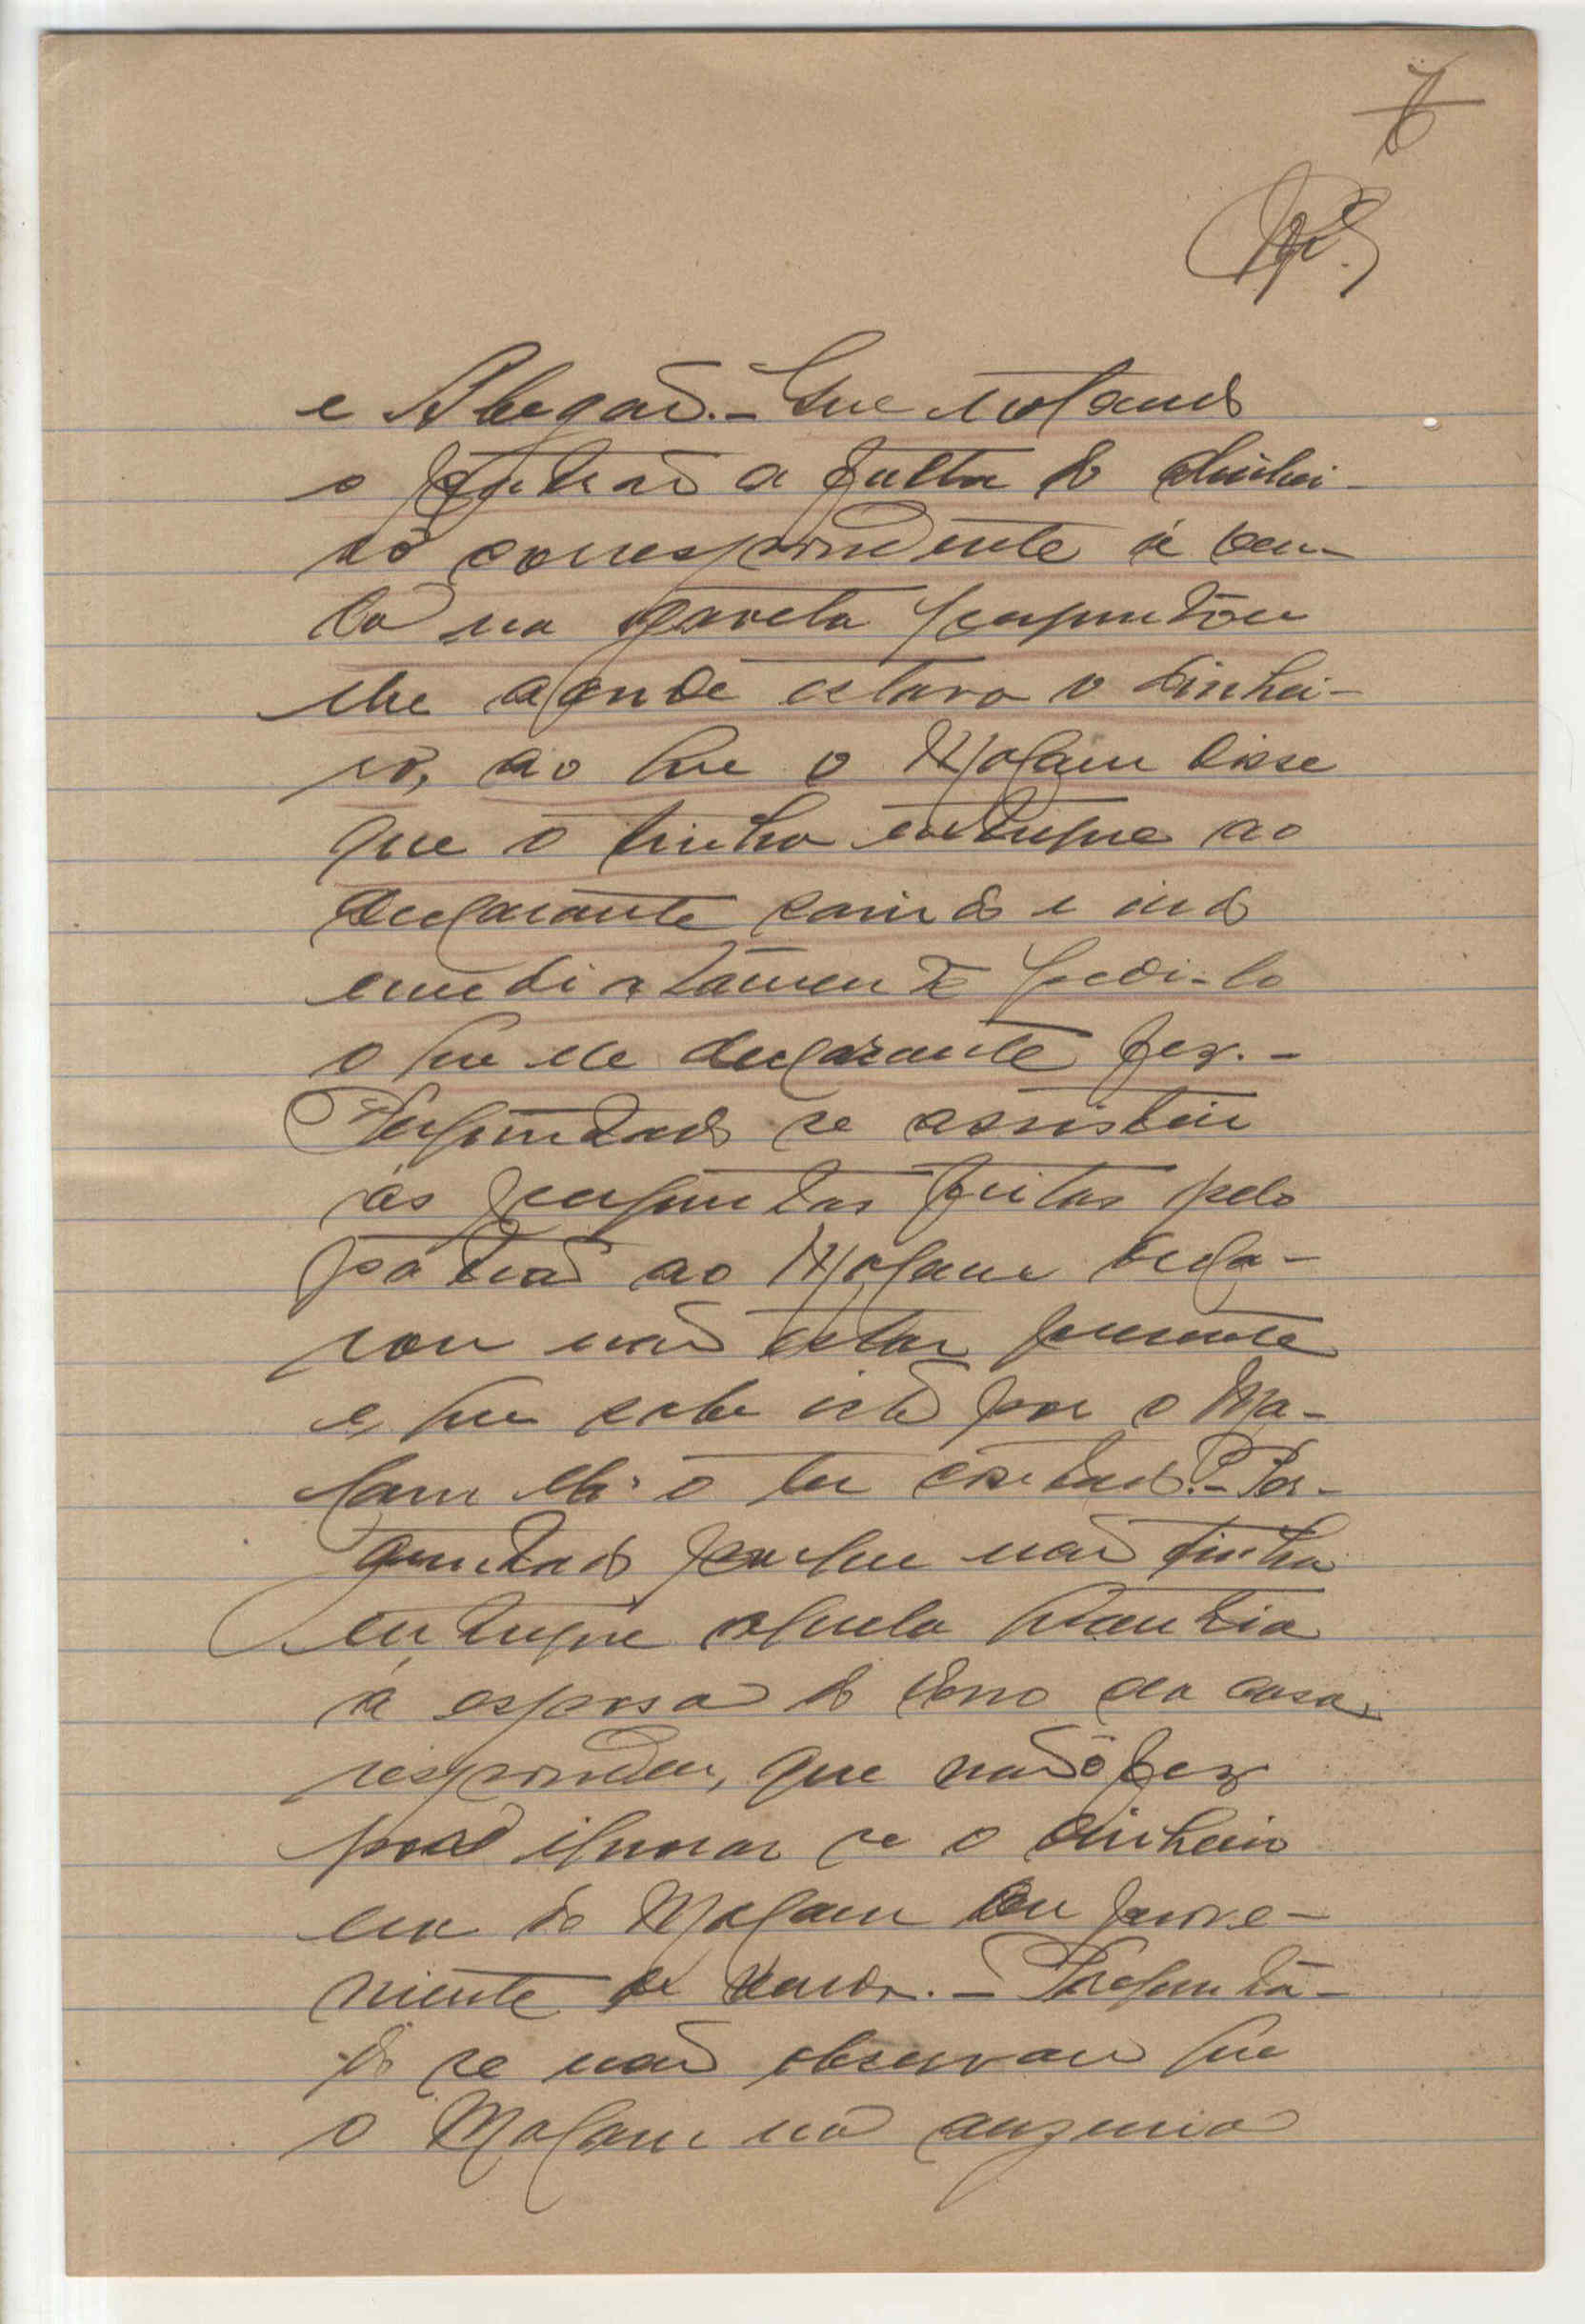 e Abegaõ. - Que notando
o patrão a falta do dinhei-
ro correspondente á ven-
da na gaveta perguntou
lhe aonde estava o dinhei-
ro, ao que o Malam disse
que o tinha entregue ao
declarante e indo
emediatamente pedi-lo
o que ele declarante fez. -
Perguntado se assistiu
ás perguntas feitas pelo
patrão ao Malam decla-
rou não estar presente
e, que sabe isto por o Ma-
lam lh'o ter contado. - Per-
guntado porque não tinha
entregue aquela quantia
á esposa do dono da casa,
respondeu, que não o fez
por ignorar se o dinheiro
era do Malam ou prove-
niente de venda. - Pregunta-
do se não observou que
o Malam na auzencia